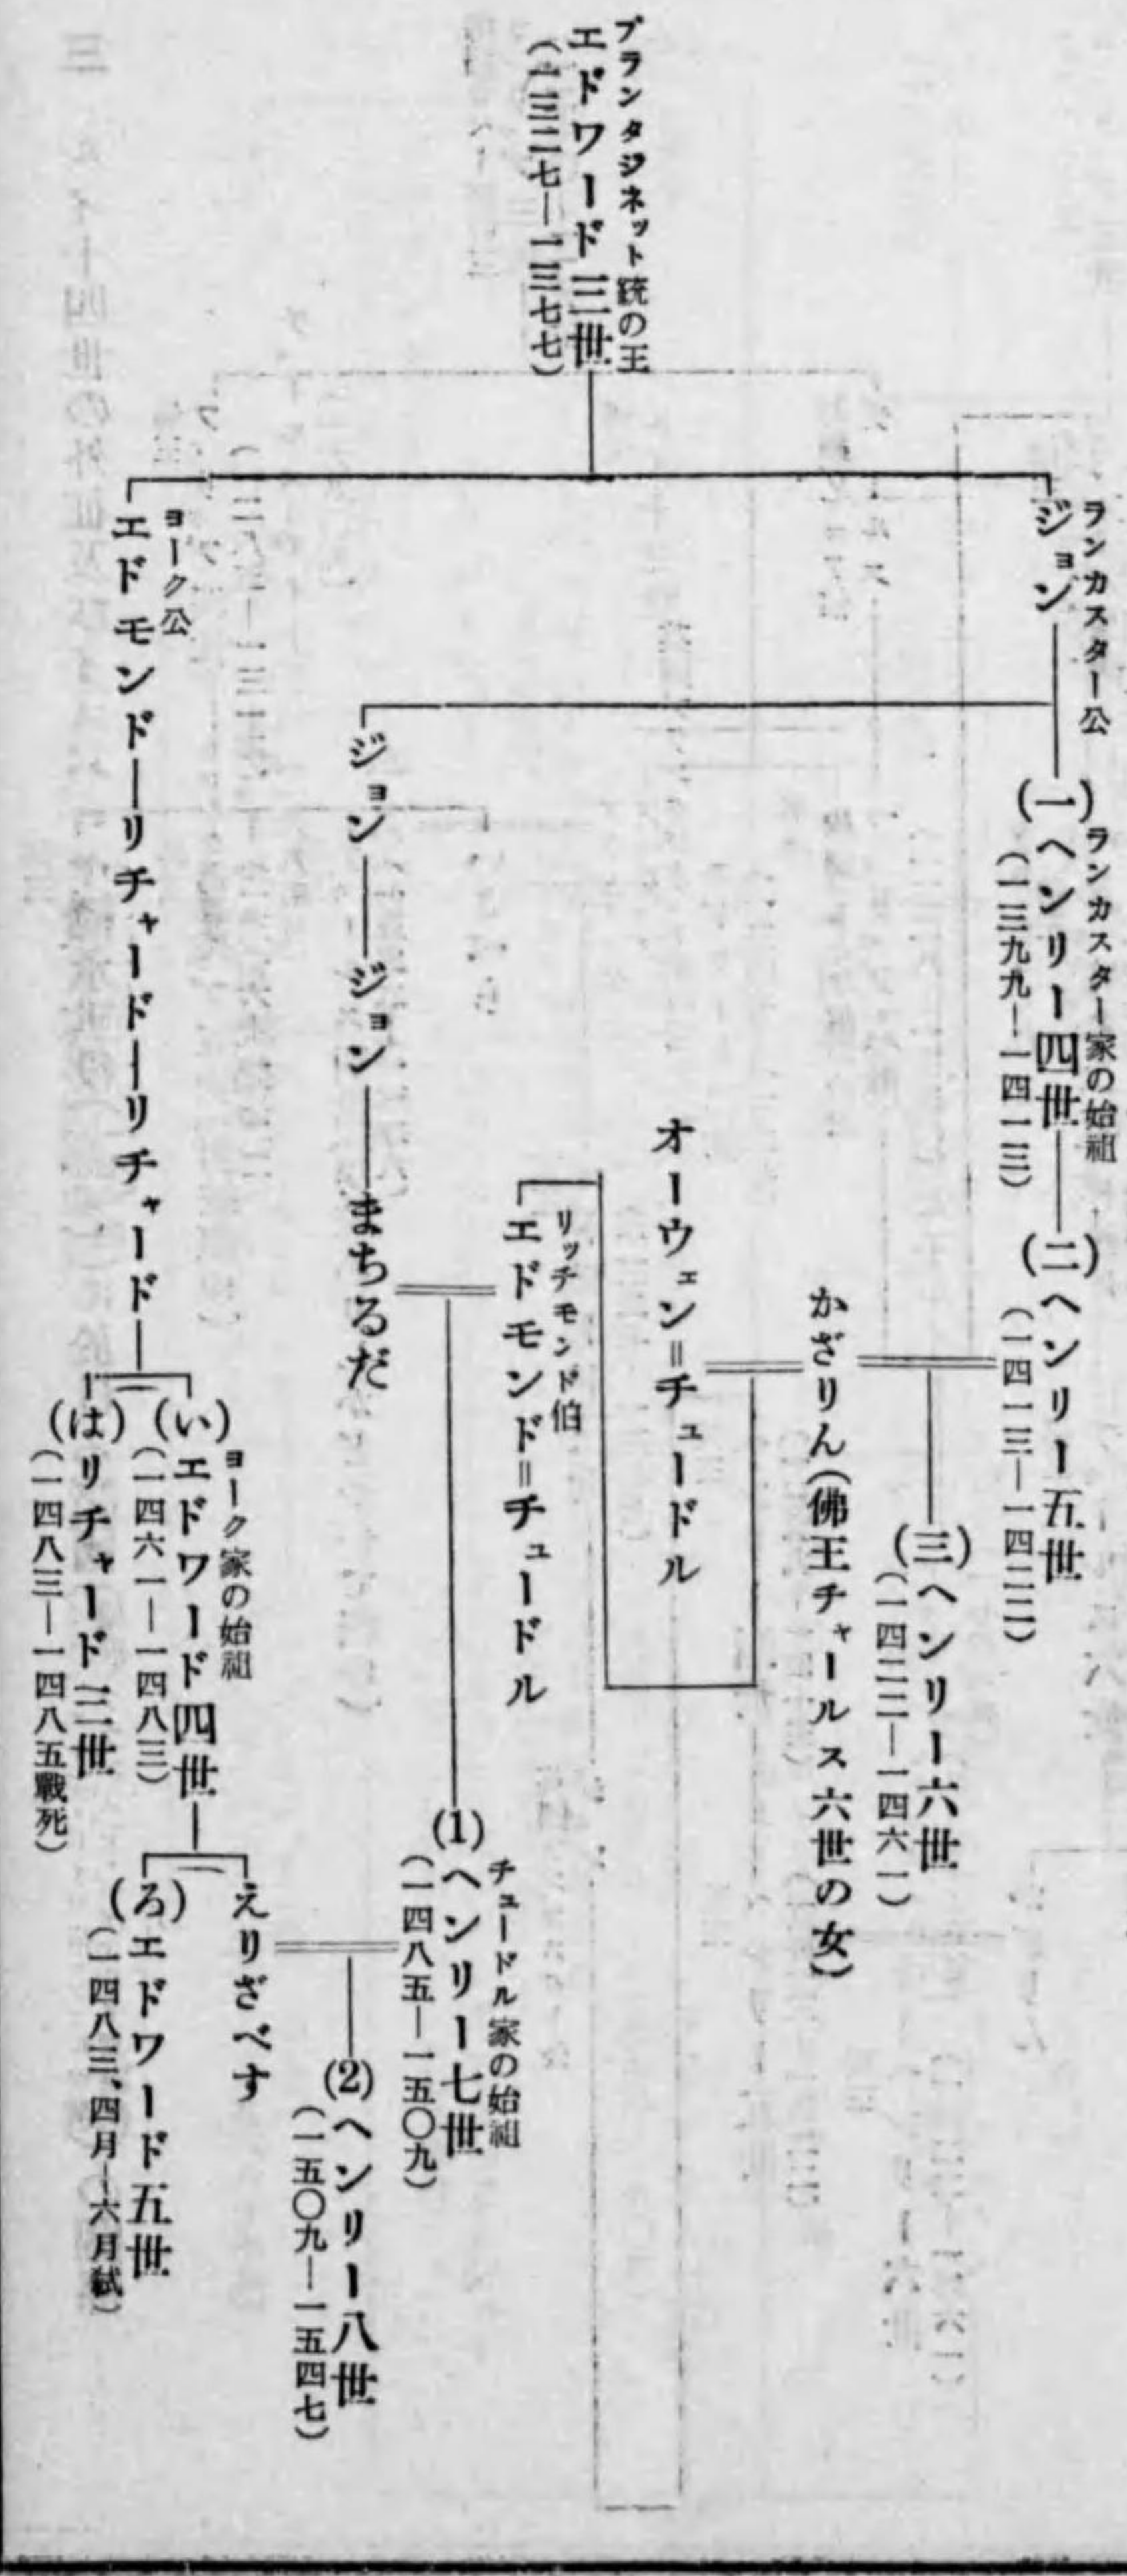 プランタジネット統の王
エドワード三世
(一三二七—一三七七)
ランカスター公
ジョン
ランカスター家の始祖
(一)ヘンリー四世
(一三九九—一四一三)
(二)ヘンリー五世
(一四一三—一四二二)
(三)ヘンリー六世
(一四二二—一四六一)
かざりん(佛王チャールス六世の女)
オーウェン=チュードル
リッチモンド伯
エドモンド=チュードル
ジョン—ジョン—まちるだ
チュードル家の始祖
(1)ヘンリー七世
(一四八五—一五〇九)
(2)ヘンリー八世
(一五〇九—一五四七)
ヨーク公
エドモンド—リチャード—リチャード
ヨーク家の始祖
(い)エドワード四世
(一四六一—一四八三)
(は)リチャード三世
(一四八三—一四八五戰死)
えりざべす
(ろ)エドワード五世
(一四八三、四月—六月弑)